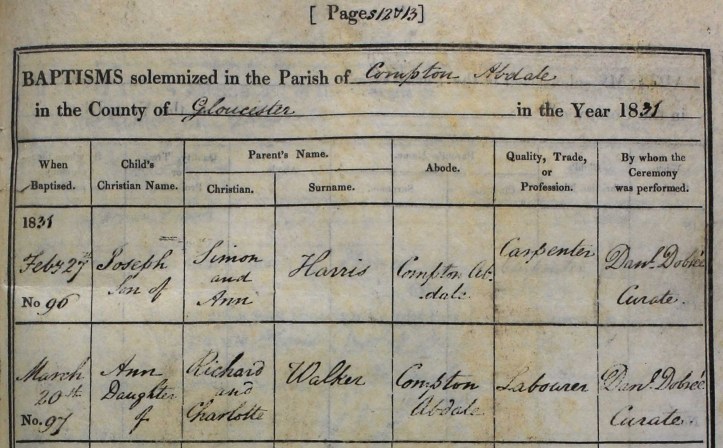 [ Pages 12 & 13 ]
BAPTISMS solemnized in the Parish of Compton Abdale
in the County of Gloucester in the Year 1831
When Baptised. Child's Christian Name. Parent's Name. Abode. Quality, Trade, or Profession. By whom the Ceremony was performed.
Christian. Surname.
1831
Feby 27th Joseph Son of Simon and Ann Harris Compton Abdale Carpenter Danl. Dobrée Curate.
No 96
March 20th Ann Daughter of Richard and Charlotte Walker Compton Abdale Labourer Danl. Dobrée Curate.
No. 97